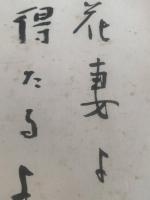 花妻よ
得たるよ